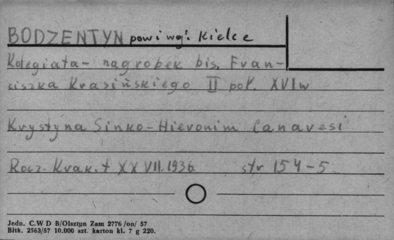 BODZENTYN pow i woj. Kielce
Kolegiata - nagrobek bis. Fran-
ciszka Krasińskiego II poł. XVI w
Krystyna Sinko - Hieronim Canavesi
Rocz. Krak. t XXVII. 1936 str 154-5
Jedn. C.W D B/Olsztyn Zam 2776 /on/ 57
Błtk. 2563/57 10.000 szt. karton kl. 7 g 220.